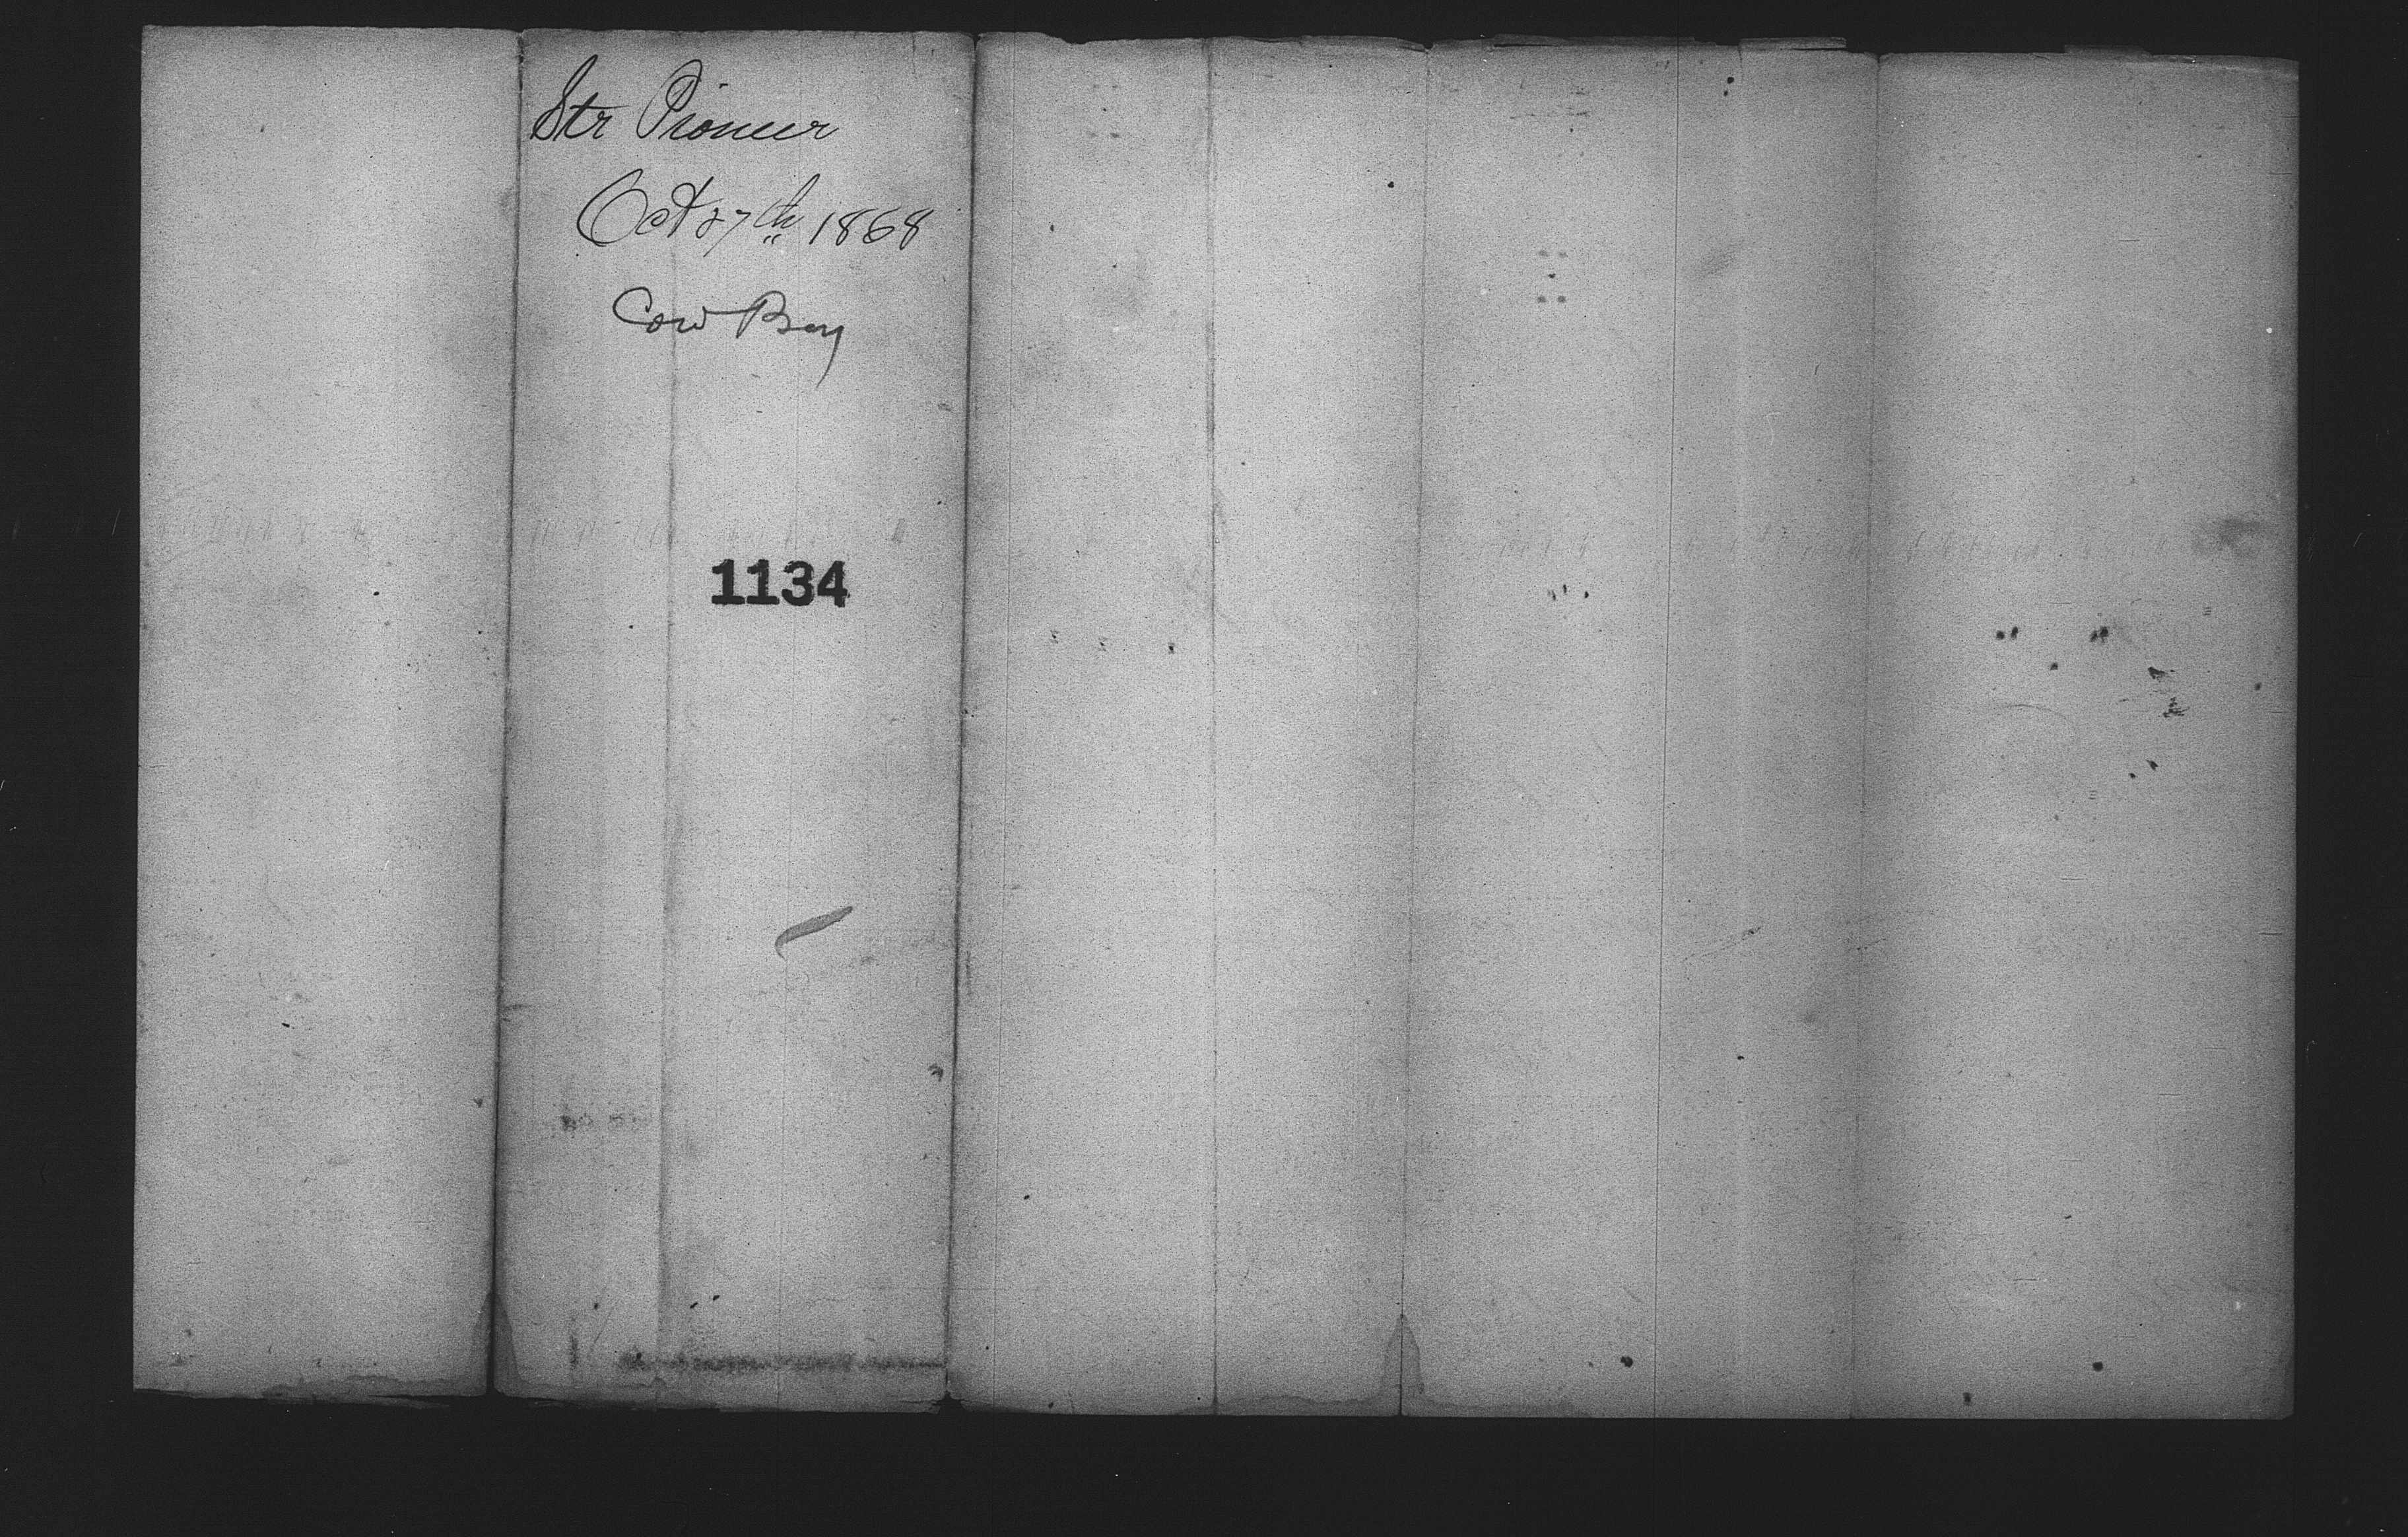 Str Pioneer
Oct 27th 1868
Cow Bay
1134